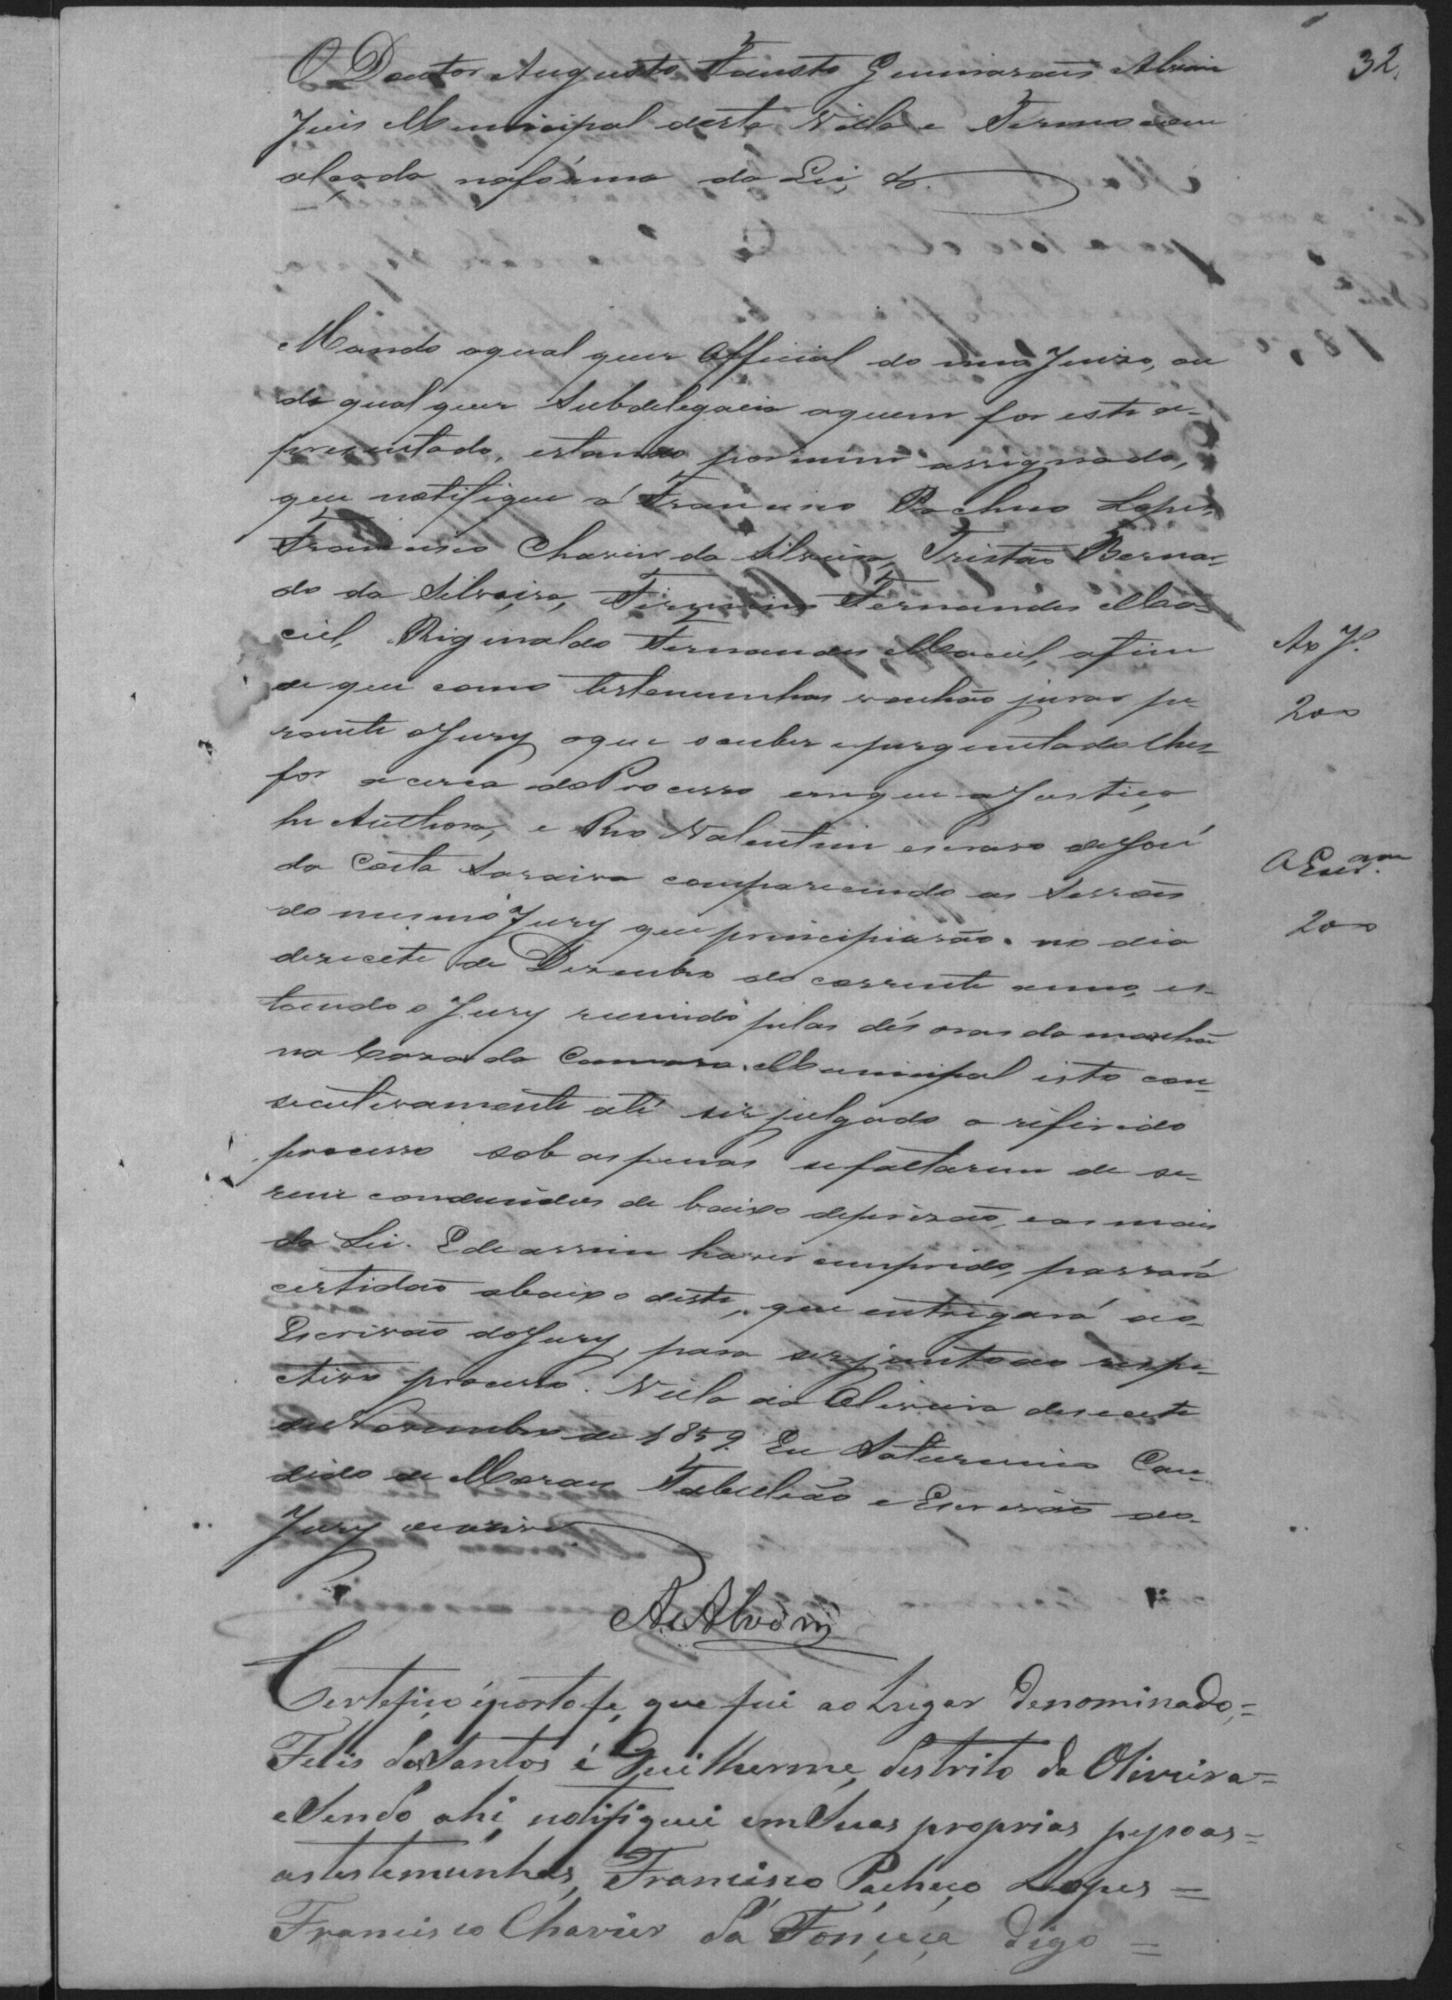 32.
O Doutor Augusto Fausto Guimaraens Alvim
Juis Municipal desta Villa e Termo com
alçada na fórma da Lei, &.
Mando aqual quer Official do meu Juizo, ou
de qual quer Subdelegacia aquem for este a-
prezentado, estando por mim assignado,
que notifique a' Francisco Pacheco Lopes,
Francisco Chavier da Silveira, Tristão Berna-
do da Silveira, Firmino Fernandes Ma-
ciel, Riginaldo Fernandes Maciel, afim
de que como testemunhas venhão jurar pe-
rante o Jury oque souber e perguntado lhes
for a cerca do Processo em que a Justiça
he Authora, e Reo Valentim escravo de José
da Costa Saraiva comparecendo as Sessões
do mesmo Jury que principiarão no dia
dezecete de Dezembro do corrente anno, es-
tando o Jury reunido pelas dés oras da manhã
na Caza da Camara Municipal isto con-
secutivamente até ser julgado o referido
processo sob as penas se faltarem de se-
rem conduzidos de baixo de prizão, e as mais
da Lei. E de assim haver cumprido, passará
certidão abaixo deste, que entregará ao
Escrivão do Jury, para ser junto ao respe-
ctivo processo. Villa da Oliveira dezecete
de Novembro de 1859. Eu Saturnino Can-
dido de Moraes Tabelião e Escrivão do
Jury o escrevi
Ao J.
200
Ao Escr.am
200
A. Alvim
Certefico é porto fe, que fui ao Lugar Denominado,=
Felis dos Santos é Guilherme, destrito da Oliveira=
e Sendo ahi, notifiquei em Suas proprias pessoas=
as testemunhas, Francisco Pacheco Lopes =
Francisco Chavier da Fonceca Digo =